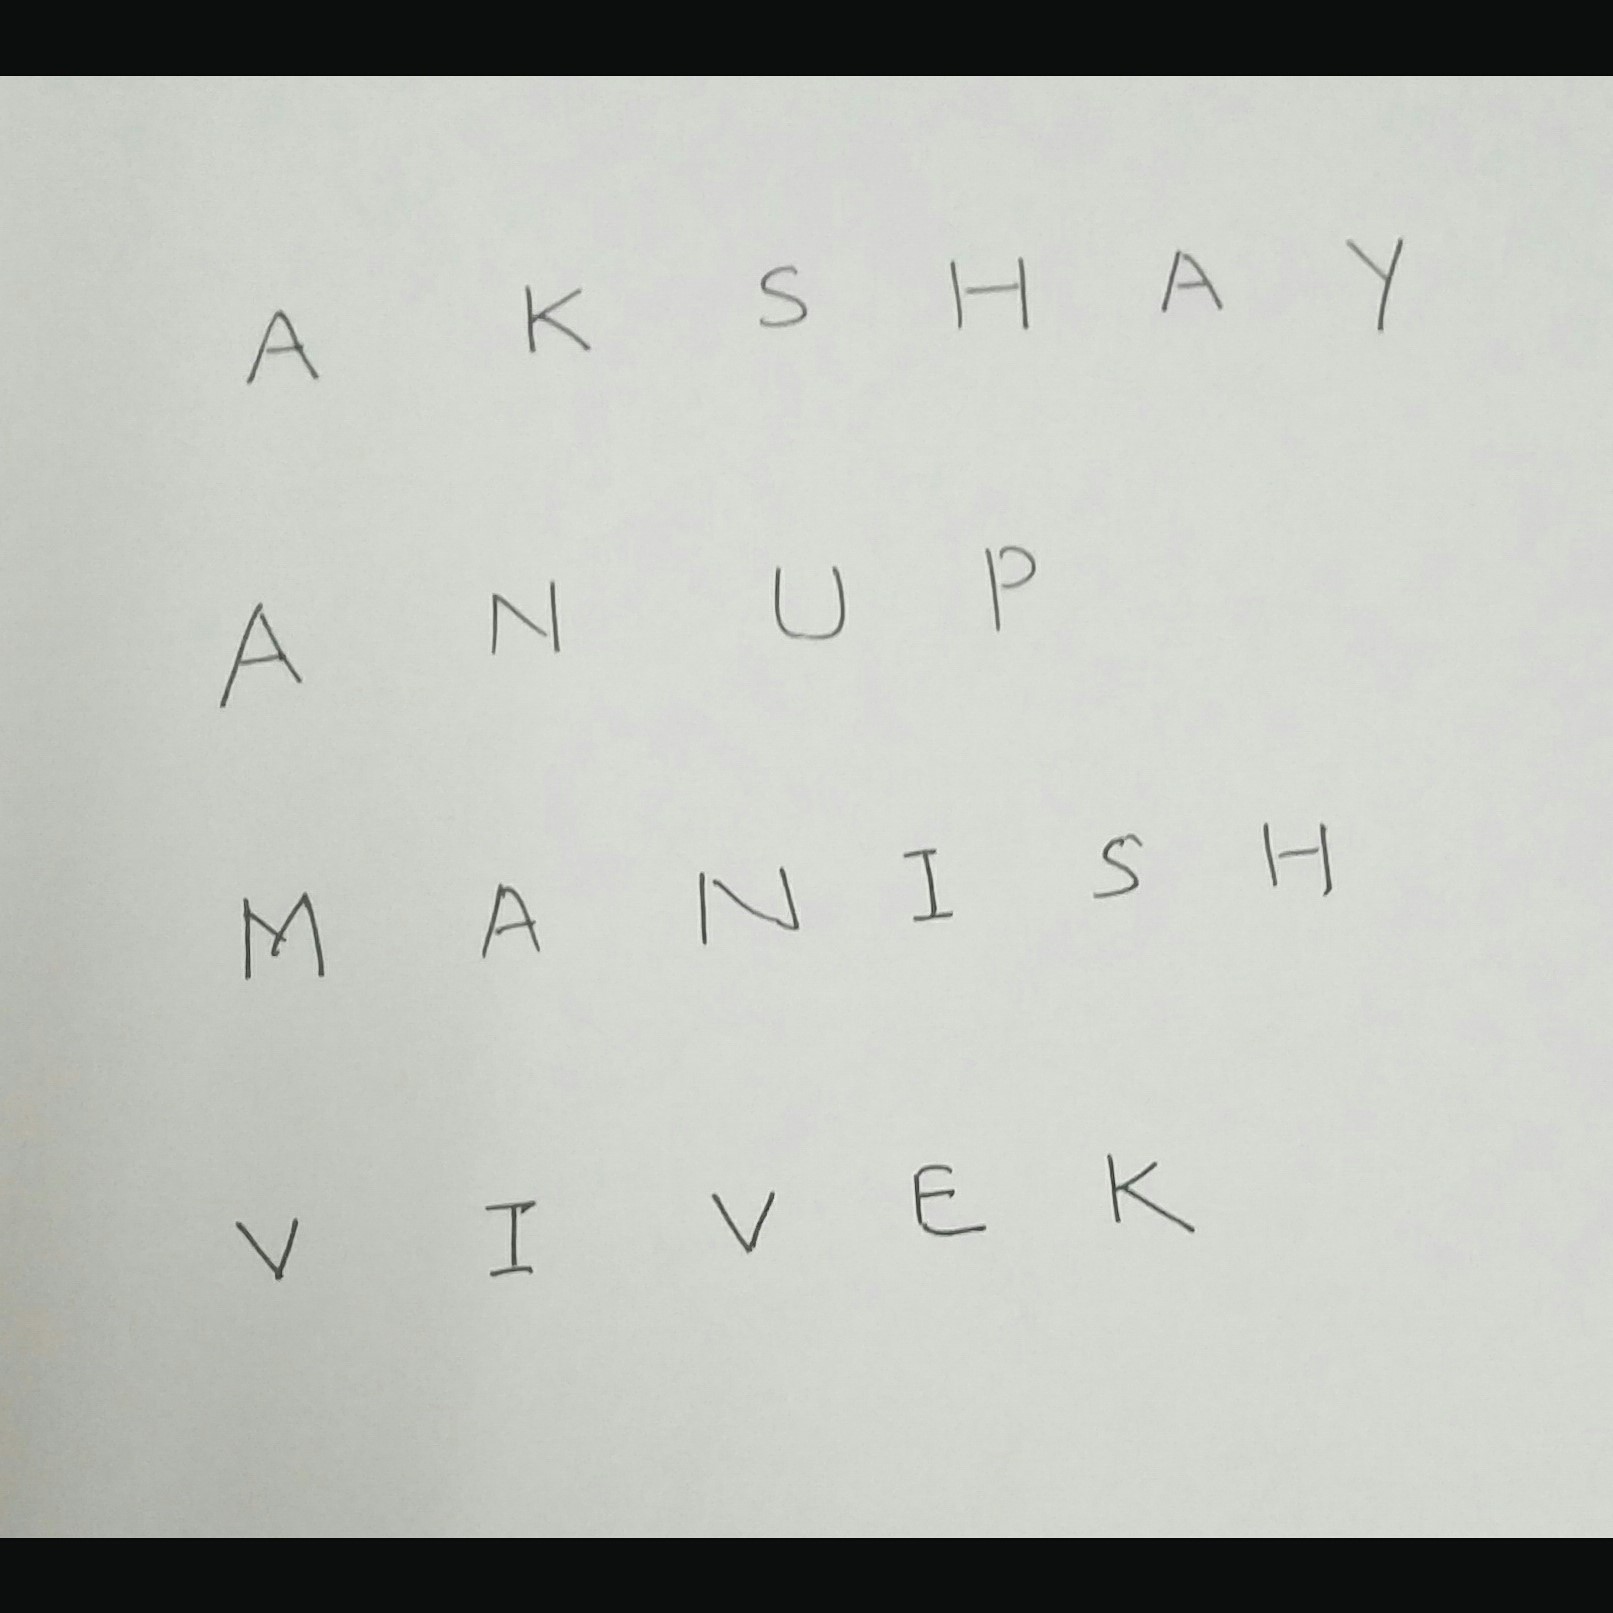 A K S H A Y
A N U P
M A N I S H
V I V E K